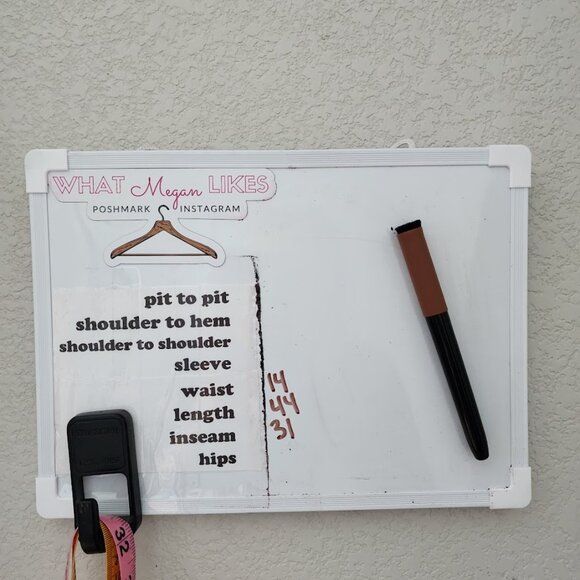 WHAT Megan LIKES
POSHMARK INSTAGRAM
pit to pit
shoulder to hem
shoulder to shoulder
sleeve
waist 14
length 44
inseam 31
hips
32